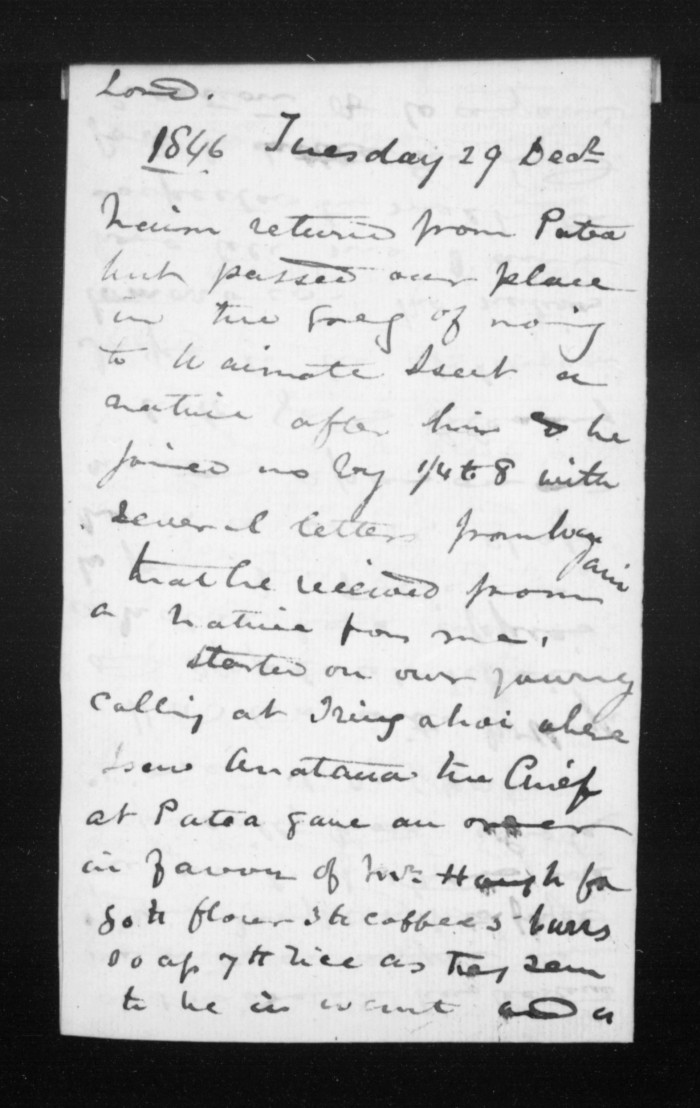 Lord.
1846 Tuesday 29 Decr
returned from Patea
but passed our place
in the of
to Waimate I sent a
native after him & he
joined us by 1/4 to 8 with
several letters from
that he received from
a native for me.
started on our journey
calling at where
I saw the Chief
at Patea gave an order
in favour of Mr Hough for
50 lb flour 3 lb coffee 3 bars
soap 7 lb rice as they seem
to be in want and a